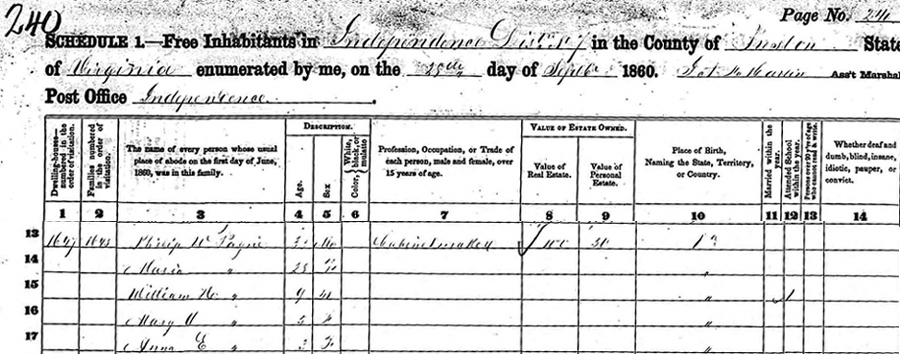 240
Page No. 24
SCHEDULE 1.—Free Inhabitants in Independence Dist. 17 in the County of Preston State
of Virginia enumerated by me, on the 25th day of Septbr 1860. Ass't Marshal
Post Office Independence.
Dwelling-houses—numbered in the order of visitation.
Families numbered in the order of visitation.
The name of every person whose usual place of abode on the first day of June, 1860, was in this family.
DESCRIPTION.
Age.
Sex
Color, White, black, or mulatto
Profession, Occupation, or Trade of each person, male and female, over 15 years of age.
VALUE OF ESTATE OWNED.
Value of Real Estate.
Value of Personal Estate.
Place of Birth, Naming the State, Territory, or Country.
Married within the year.
Attended School within the year.
Persons over 20 y'rs of age who cannot read & write.
Whether deaf and dumb, blind, insane, idiotic, pauper, or convict.
1 2 3 4 5 6 7 8 9 10 11 12 13 14
13 Philip W Payne M Cabinetmaker 100
14 Maria " F "
15 William H. " 9 M " 1
16 Mary " "
17 Anna E " 3 F "